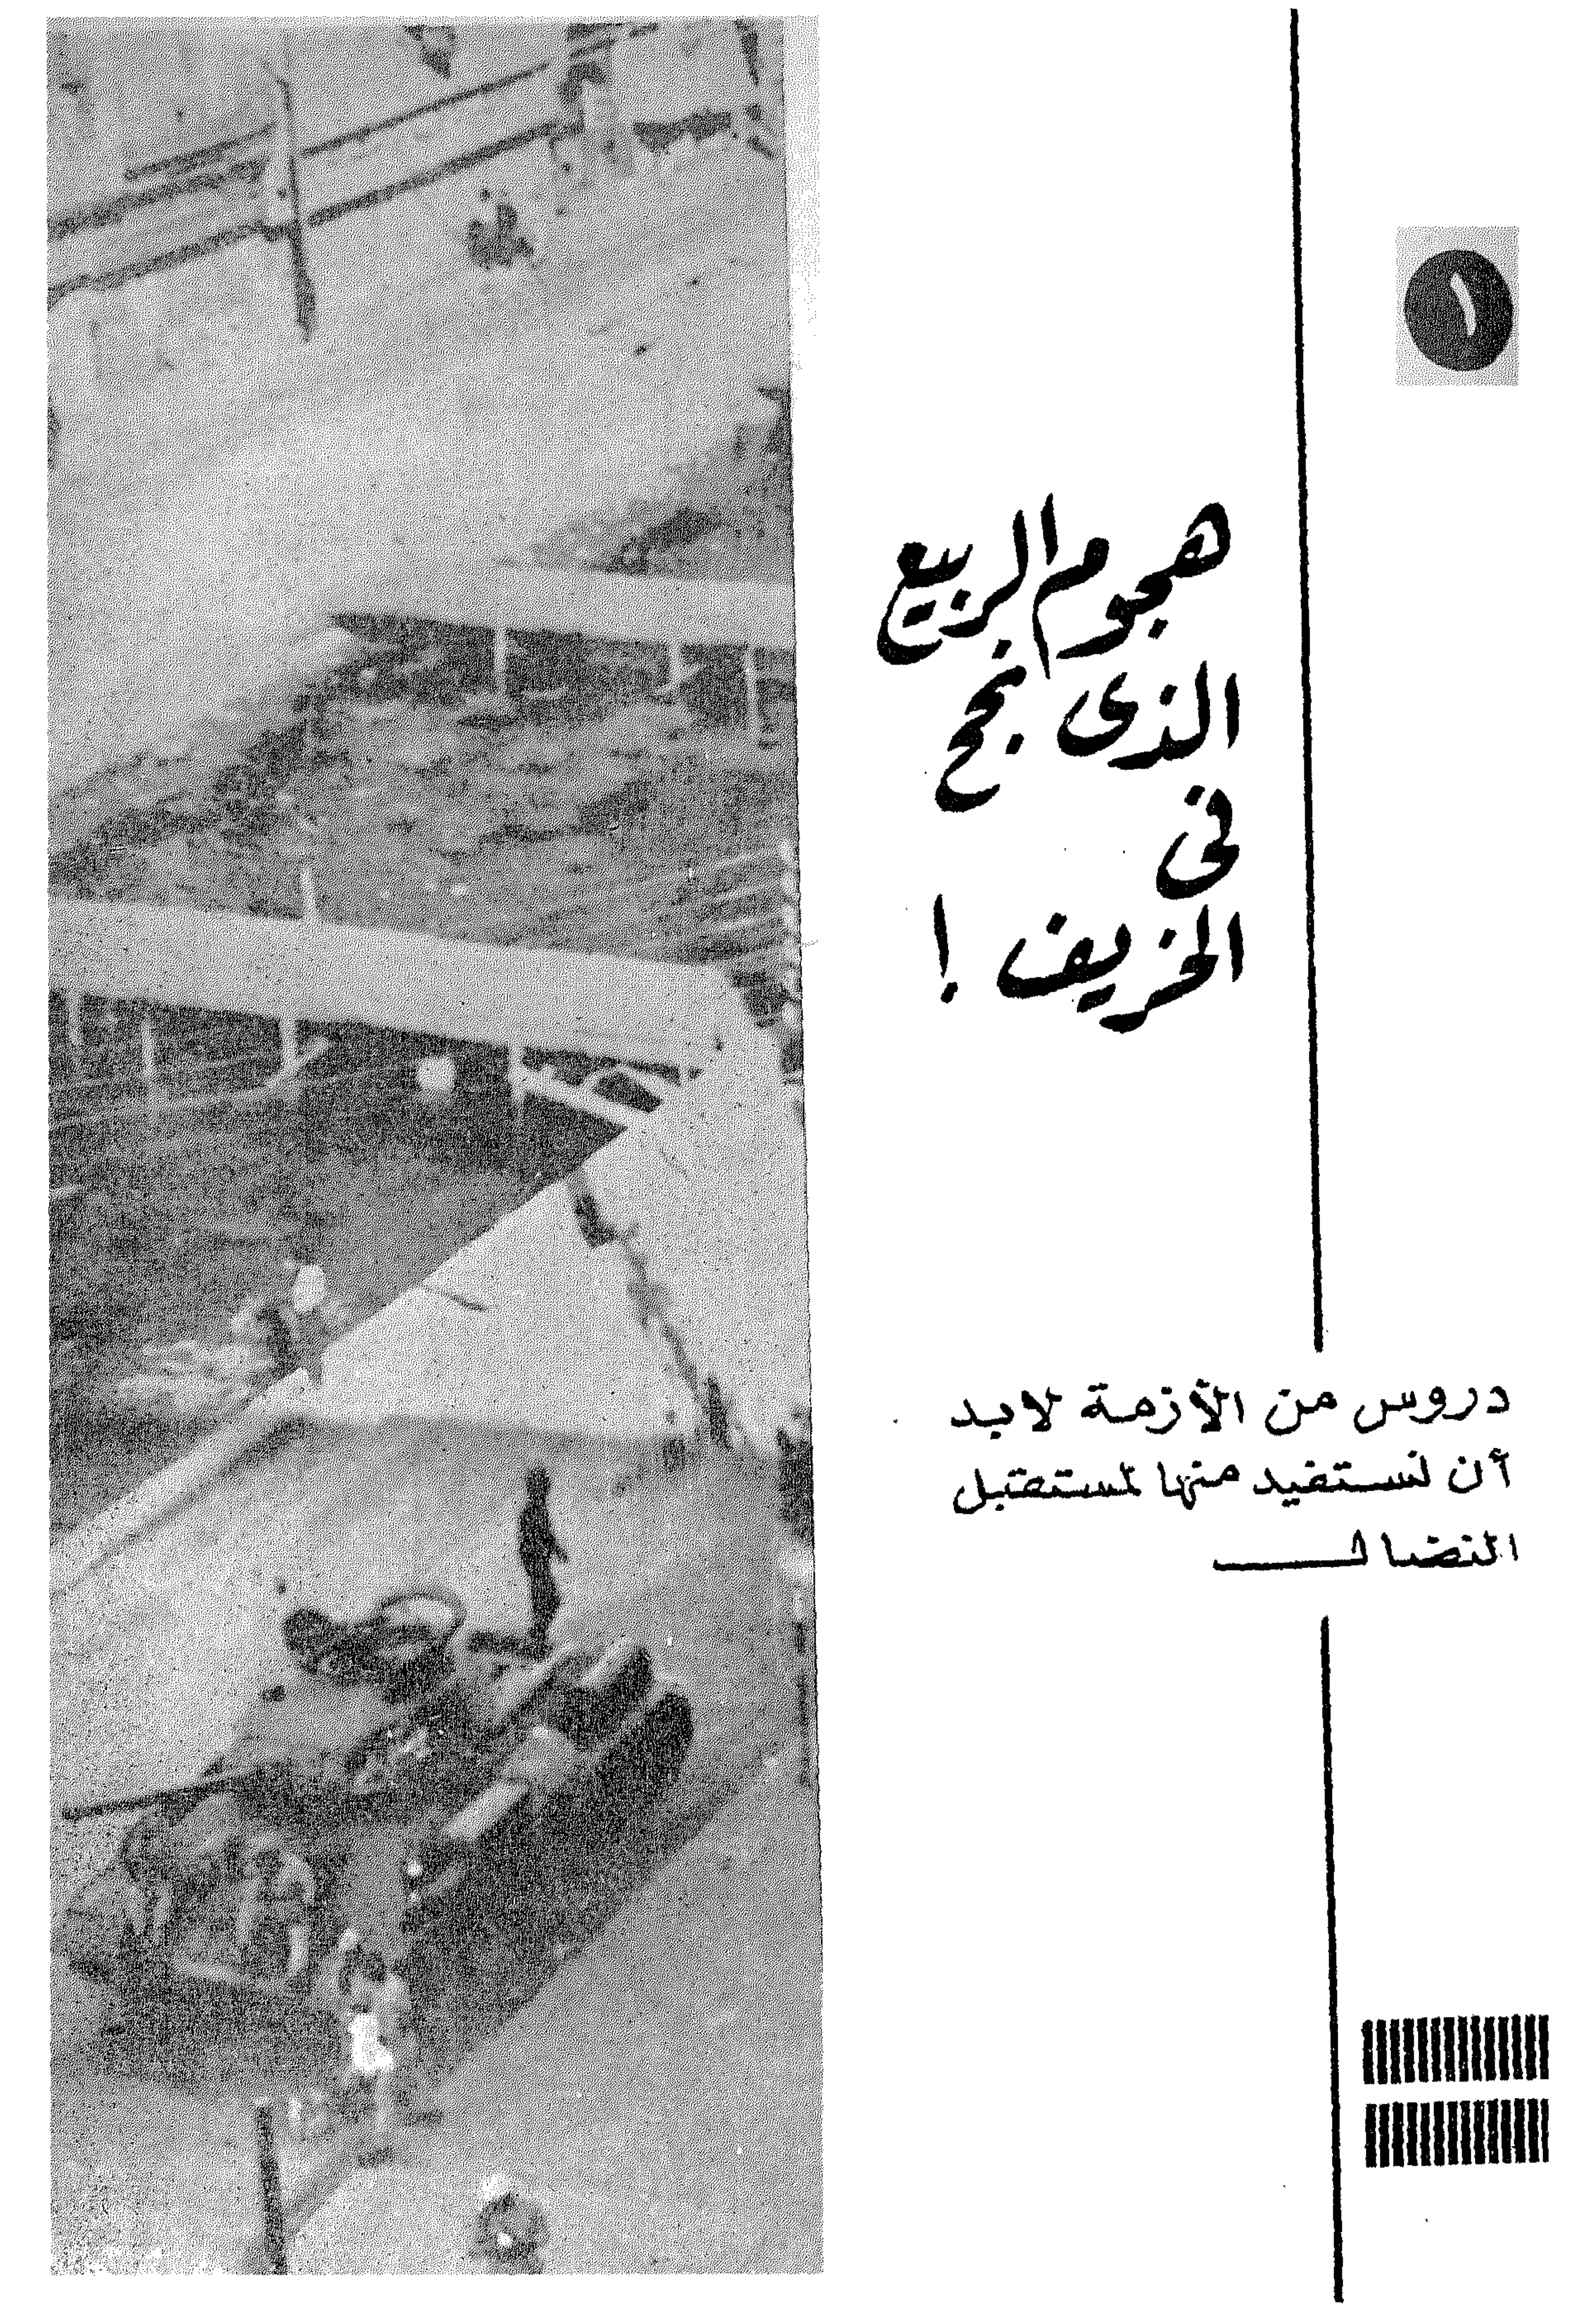 ١
هجوم الربيع
الذى نجح
فى
الخريف !
دروس من الأزمة لابد
أن نستفيد منها لمستقبل
النضال